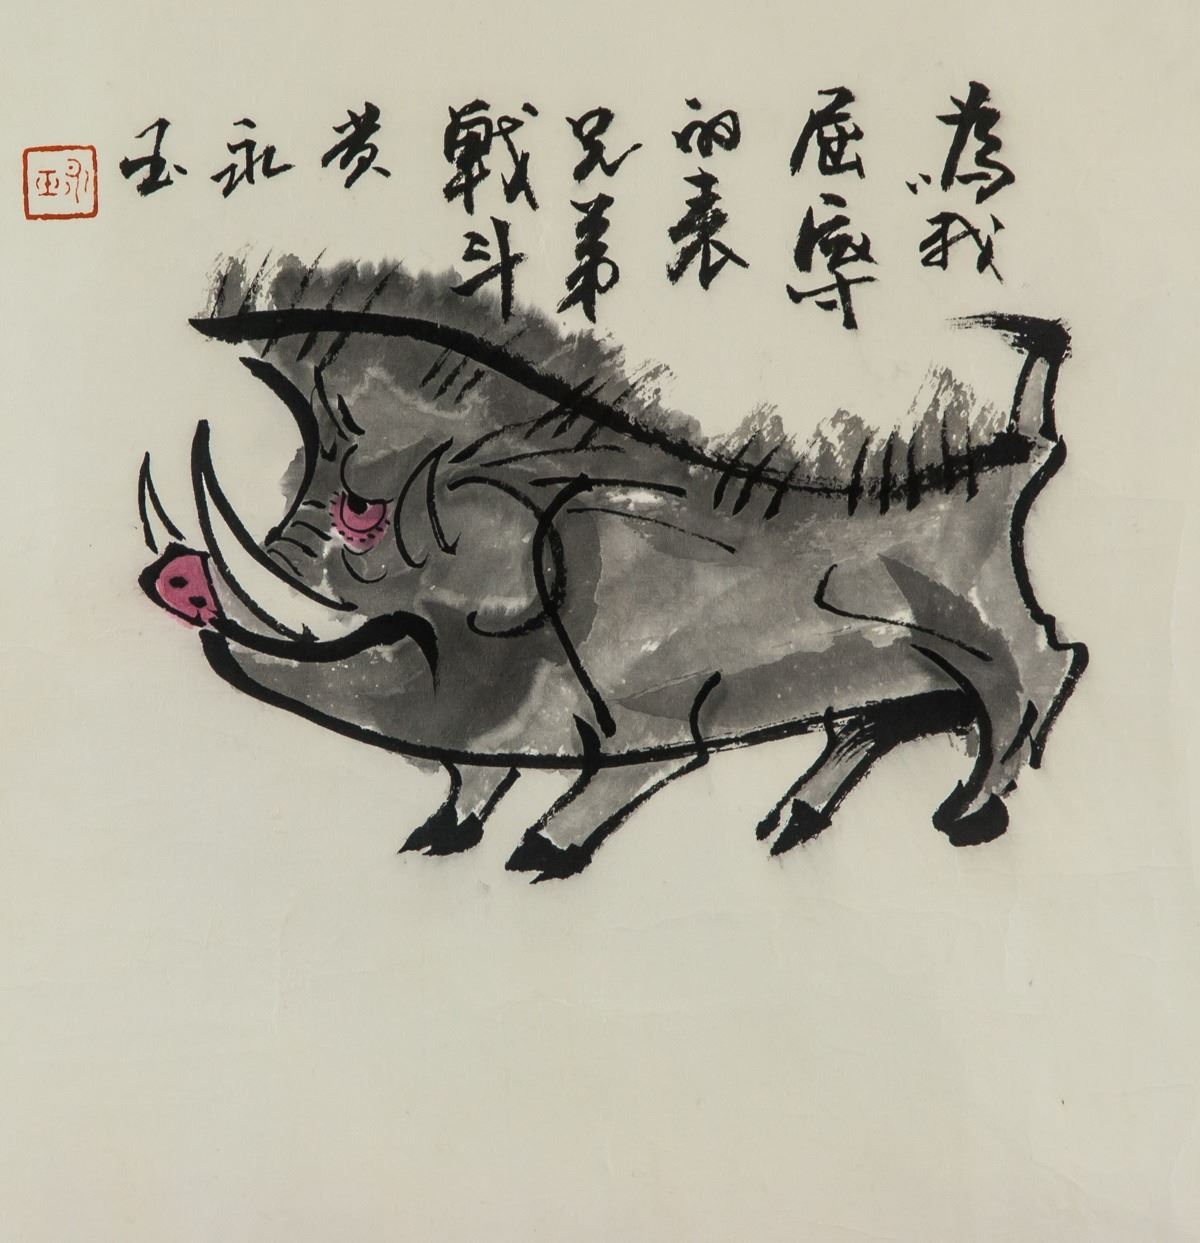 為我
屈辱
的表
兄弟
戰斗
黄
永
玉
永玉